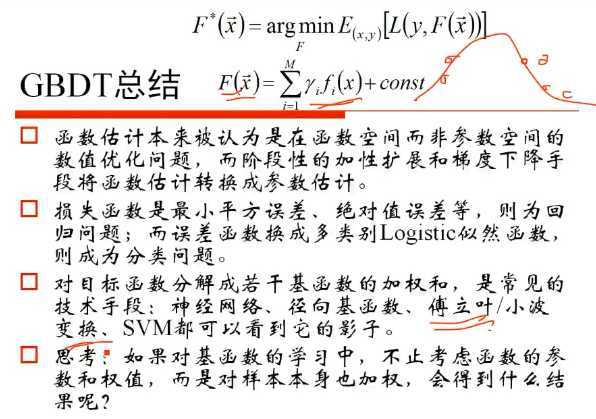 F*(x⃗) = arg min_F E_(x,y)[L(y, F(x⃗))]
GBDT总结
F(x⃗) = ∑_{i=1}^{M} γ_i f_i(x) + const
函数估计本来被认为是在函数空间而非参数空间的
数值优化问题，而阶段性的加性扩展和梯度下降手
段将函数估计转换成参数估计。
损失函数是最小平方误差、绝对值误差等，则为回
归问题；而误差函数换成多类别Logistic似然函数，
则成为分类问题。
对目标函数分解成若干基函数的加权和，是常见的
技术手段：神经网络、径向基函数、傅立叶/小波
变换、SVM都可以看到它的影子。
思考：如果对基函数的学习中，不止考虑函数的参
数和权值，而是对样本本身也加权，会得到什么结
果呢？